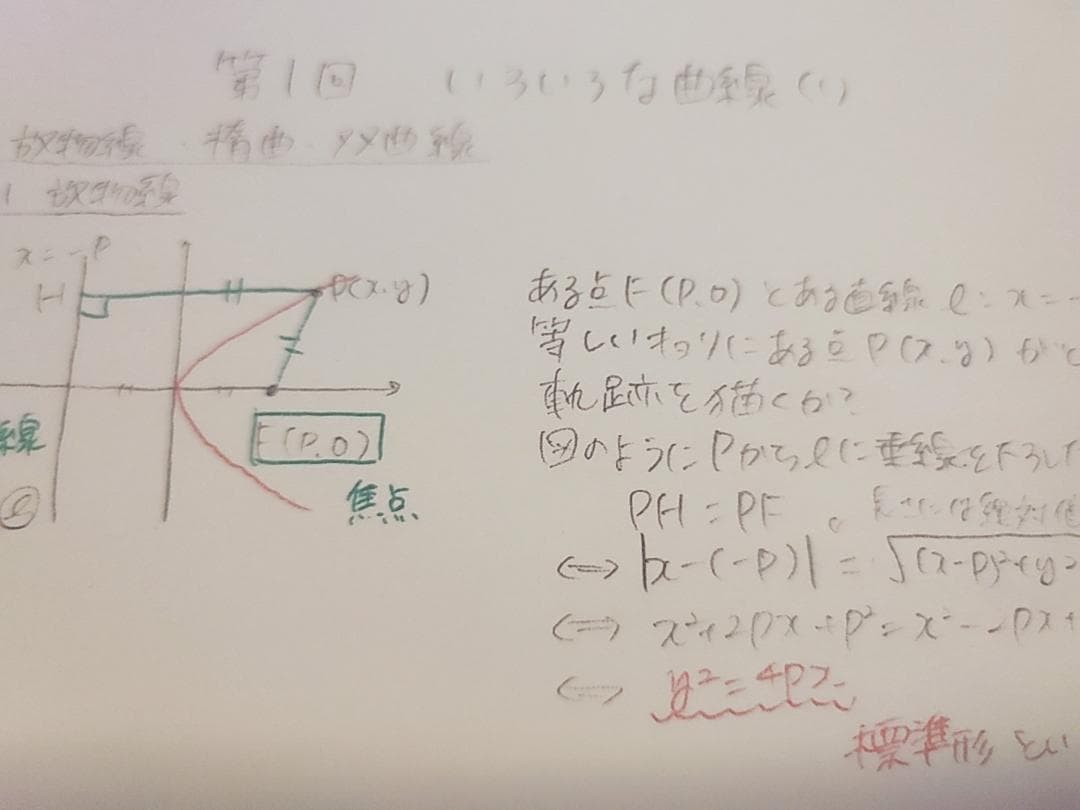 第1回 いろいろな曲線(1)
放物線・楕曲・双曲線
1 放物線
x=-P
H
P(x,y)
F(P,0)
線
ℓ
焦点
ある点F(P,0)とある直線 ℓ:x=-
等しいわりにある点P(x,y)が
軌跡を描くか?
図のようにPからℓに垂線を下ろした
PH=PF 。長さには絶対値
⇔ |x-(-P)|=√(x-P)²+(y²
⇔ x²+2Px+P²=x²-2Px+
⇔ y²=4Px
標準形 とい